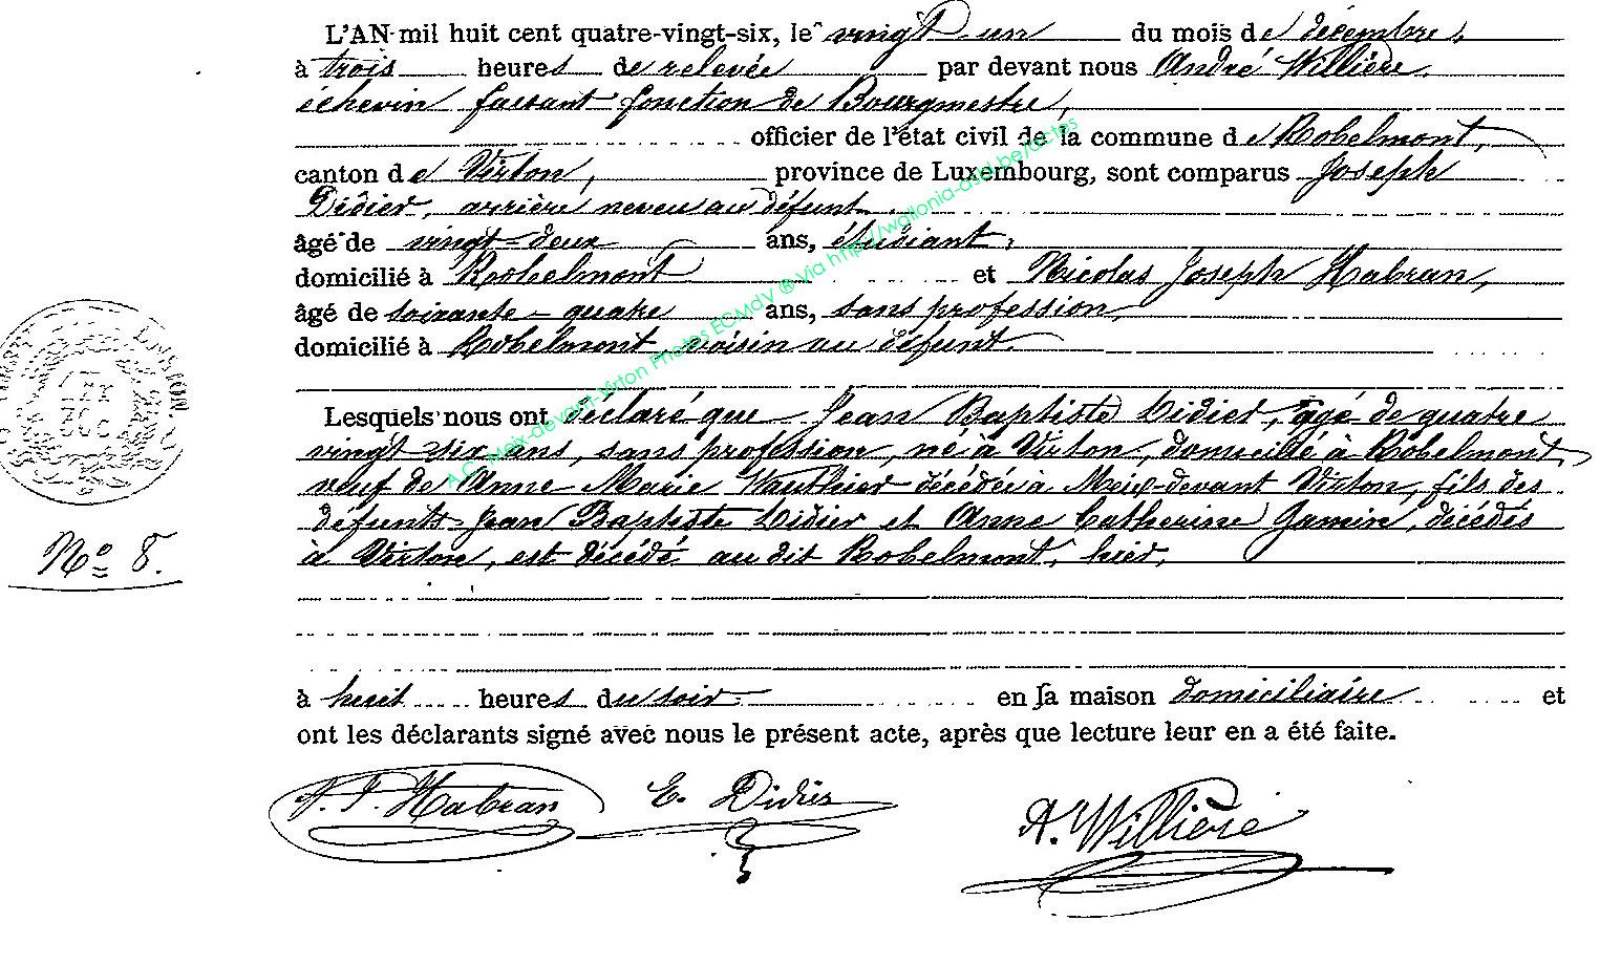 L'AN mil huit cent quatre-vingt-six, le vingt un du mois de décembre,
à trois heures de relevée par devant nous André Willière,
échevin faisant fonction de Bourgmestre,
officier de l'état civil de la commune de Robelmont,
canton de Virton, province de Luxembourg, sont comparus Joseph
Didier, arrière neveu au défunt.
âgé de vingt-deux ans, étudiant,
domicilié à Robelmont et Nicolas Joseph Habran,
âgé de soixante-quatre ans, sans profession,
domicilié à Robelmont, voisin au défunt.
Lesquels nous ont déclaré que Jean Baptiste Didier, âgé de quatre
vingt six ans, sans profession, né à Virton, domicilié à Robelmont,
veuf de Anne Marie Wauthier décédée à Meix-devant Virton, fils des
défunts Jean Baptiste Didier et Anne Catherine Jamin, décédés
à Virton, est décédé au dit Robelmont, hier,
No 8.
à huit heures du soir en sa maison domiciliaire et
ont les déclarants signé avec nous le présent acte, après que lecture leur en a été faite.
J. Habran E. Didier A. Willière
A.C. Meix-devant-Virton Photos ECMdV ® Via http://wallonia-asbl.be/actes